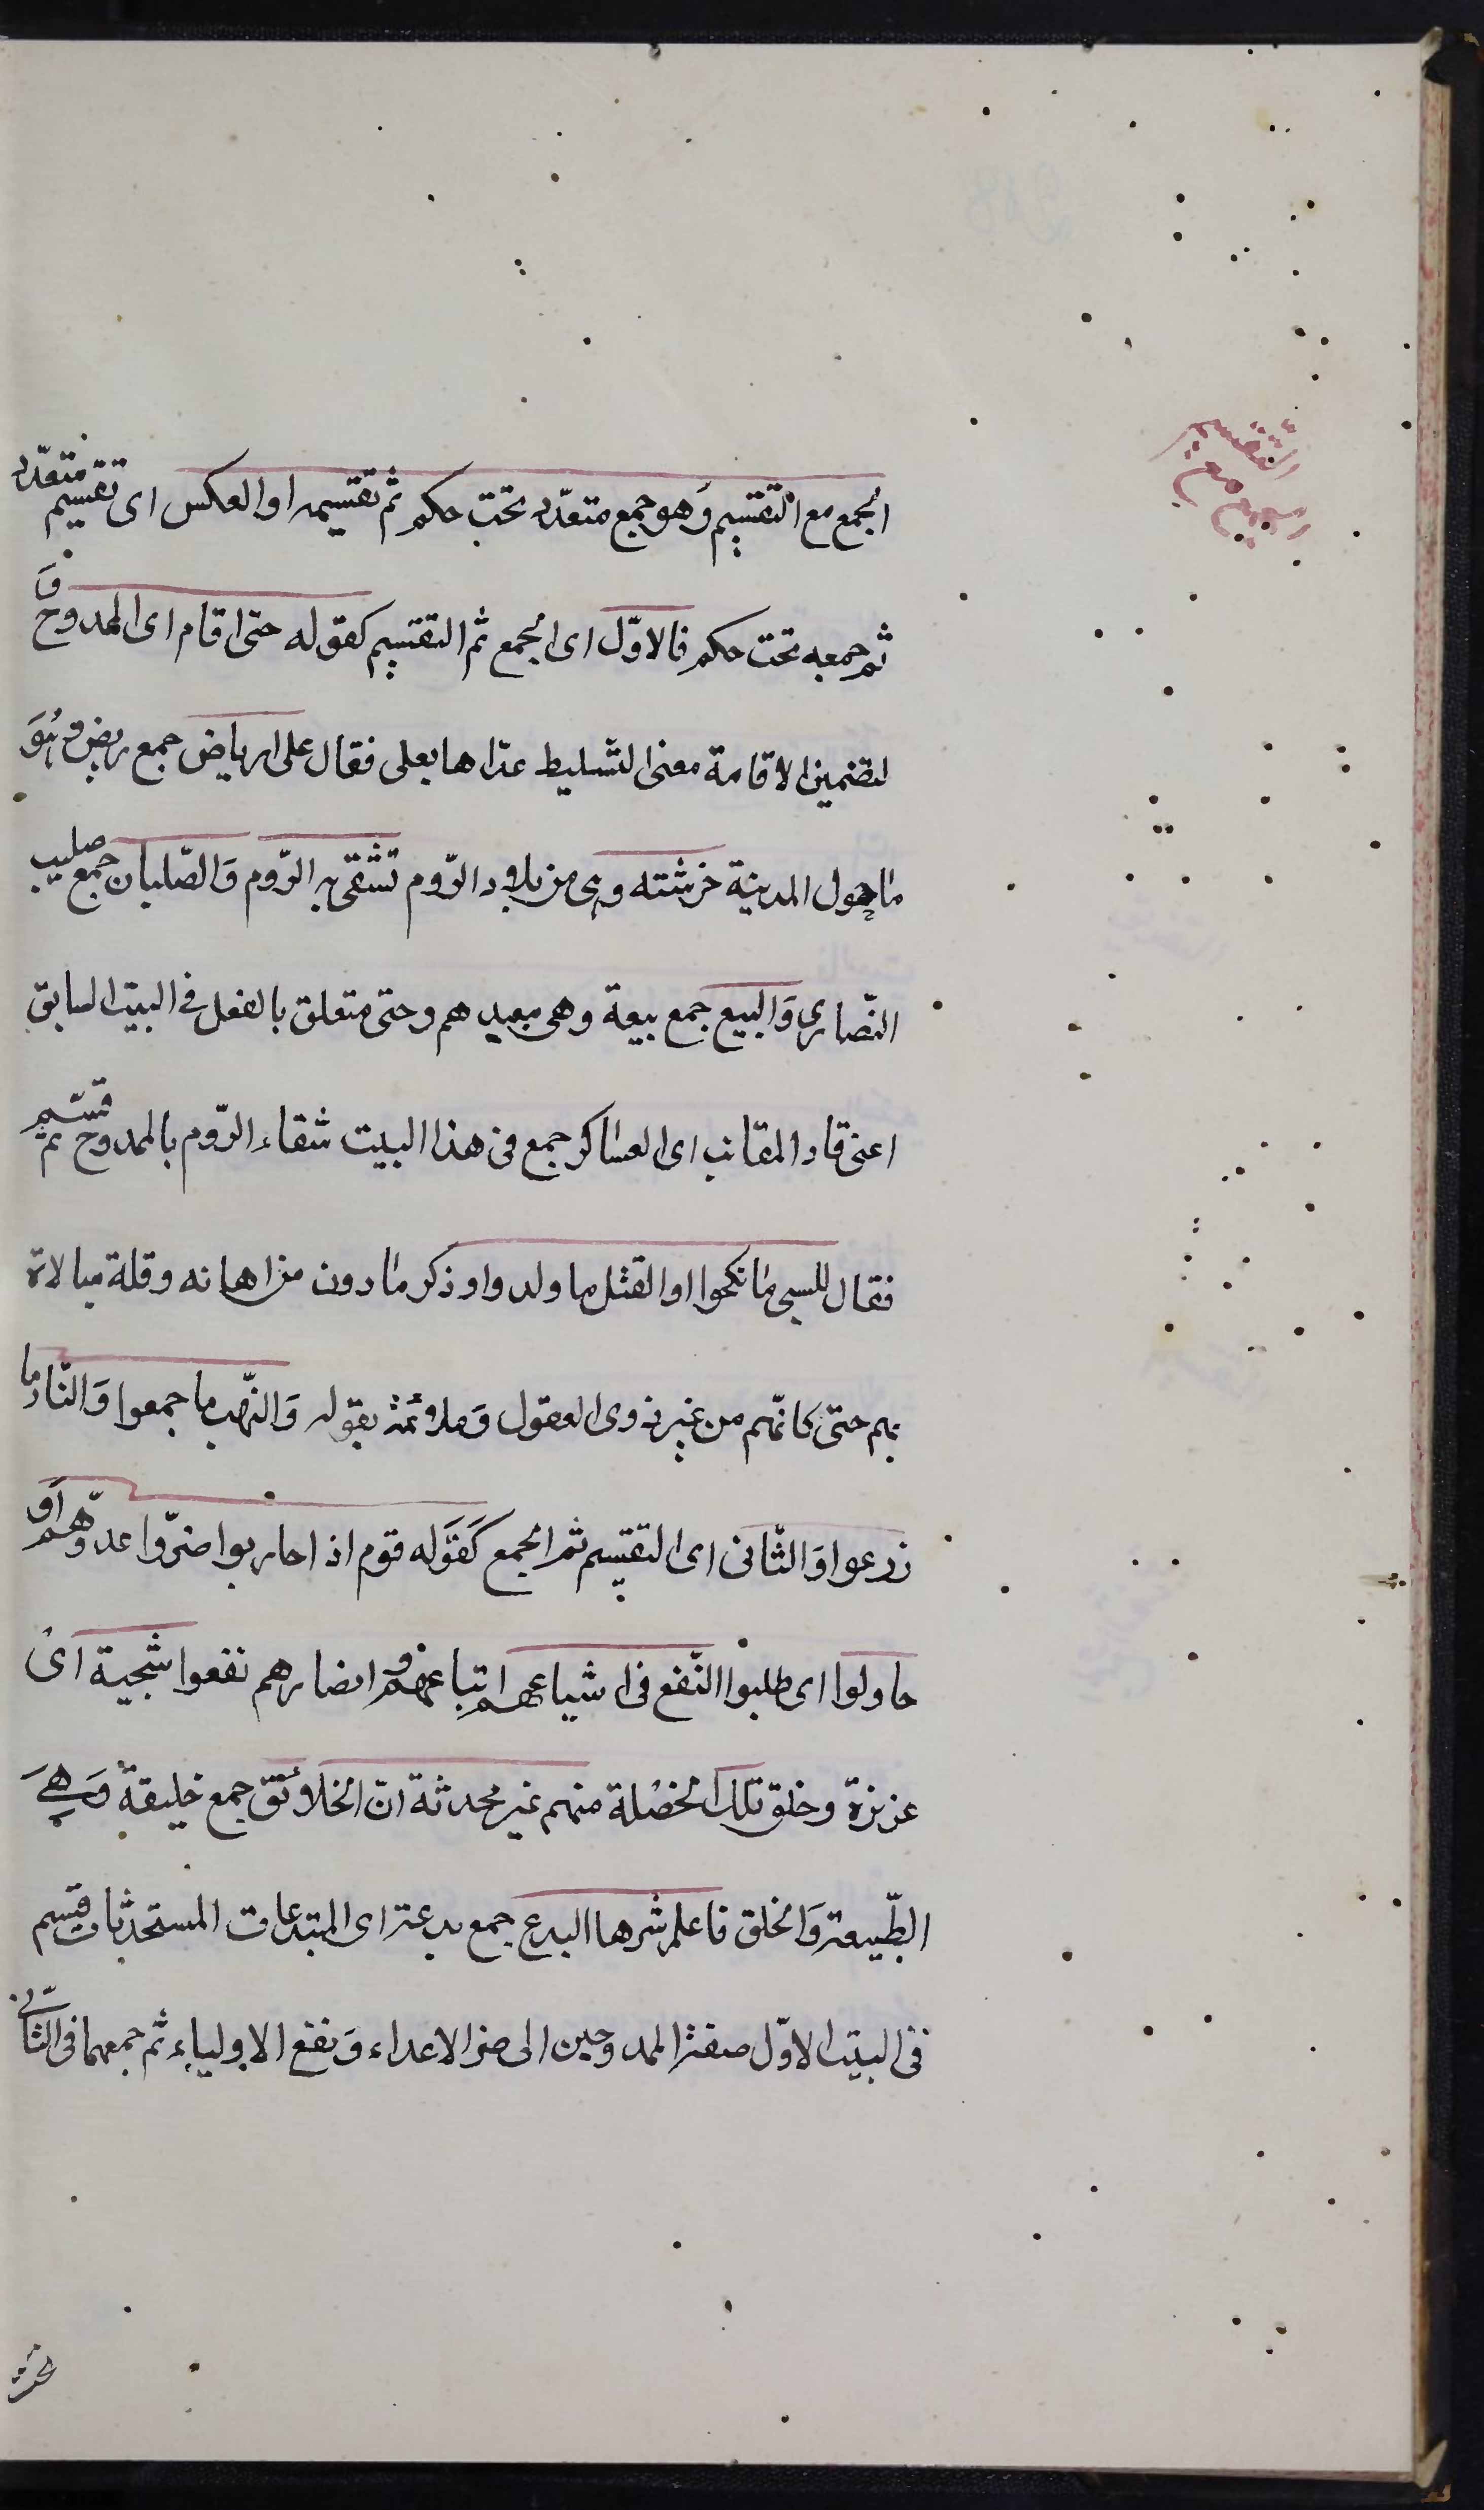 الجمع مع
التقسيم
الجمع مع التقسيم وَهو جمع متعدّد تحت حكم ثم تقسيمه او العكس اى تقسيم متعدّد
ثم جمعه تحت حكم فالاوّل اى الجمع ثم التقسيم كقوله حتى اقام اى الممدوح وَ
لتضمين الاقامة معنى التسليط عدّاها بعلى فقال على ارباض جمع ربض وَهُوَ
ما حول المدينة خرشنه وهى من بلاد الرّوم تشقى به الرّوم وَالصّلبان جمع صليب
النّصارى وَالبيع جمع بيعة وهى معبدهم وحتى متعلق بالفعل فى البيت السابق
اعنى قاد المقانب اى العساكر جمع فى هذا البيت شقاء الرّوم بالممدوح ثم قسّم
فقال للسبى ما نكحوا والقتل ما ولدوا وذكر ما دون من اهانه وقلة مبالاة
بهم حتى كانّهم من غير ذوى العقول وَملائمة بقوله وَالنّهب ما جمعوا وَالنّار ما
زرعوا وَالثّانى اى التقسيم ثم الجمع كَقوَله قوم اذا حاربوا ضرّوا عدوّهم اَو
حاولوا اى طلبوا النّفع فى اشياعهم اتباعهم وَ انصارهم نفعوا سجية اى
غريزة وخلق تلك الخصْلة منهم غير محدثة انّ الخلائق جمع خليقة وَهِىَ
الطّبيعة وَالخلق فاعلم شرها البدع جمع بدعة اى المبتدعات المستحدثات قسم
فى البيت الاوّل صفة الممدوحين الى ضر الاعداء وَنفع الاولياء ثم جمعهما فى الثّانى